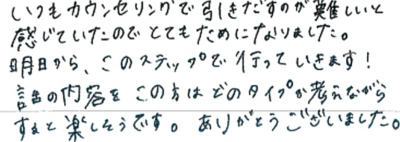 いつもカウンセリングで引きだすのが難しいと
感じていたのでとてもためになりました。
明日から、このステップで行っていきます!
話の内容をこの方はどのタイプか考えながら
すると楽しそうです。ありがとうございました。